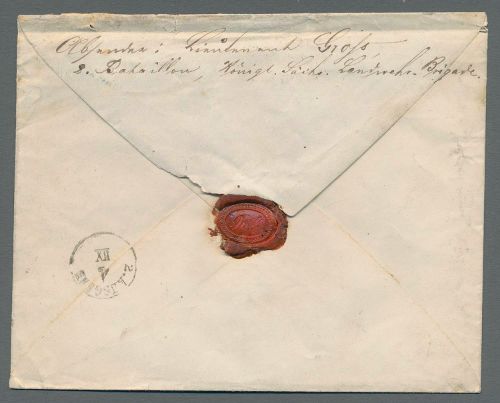 Absender: Lieutenant Groß,
2. Bataillon, Königl. Sächs. Landwehr-Brigade.
XII